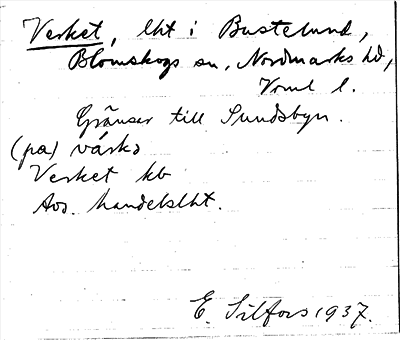 Verket, lht i Bustelund,
Blomskogs sn, Nordmarks hd,
Vrml l.
Gränser till Sundsbyn.
(pa) várkə
Verket kb
Avs. handelslht.
E. Silfors 1937.